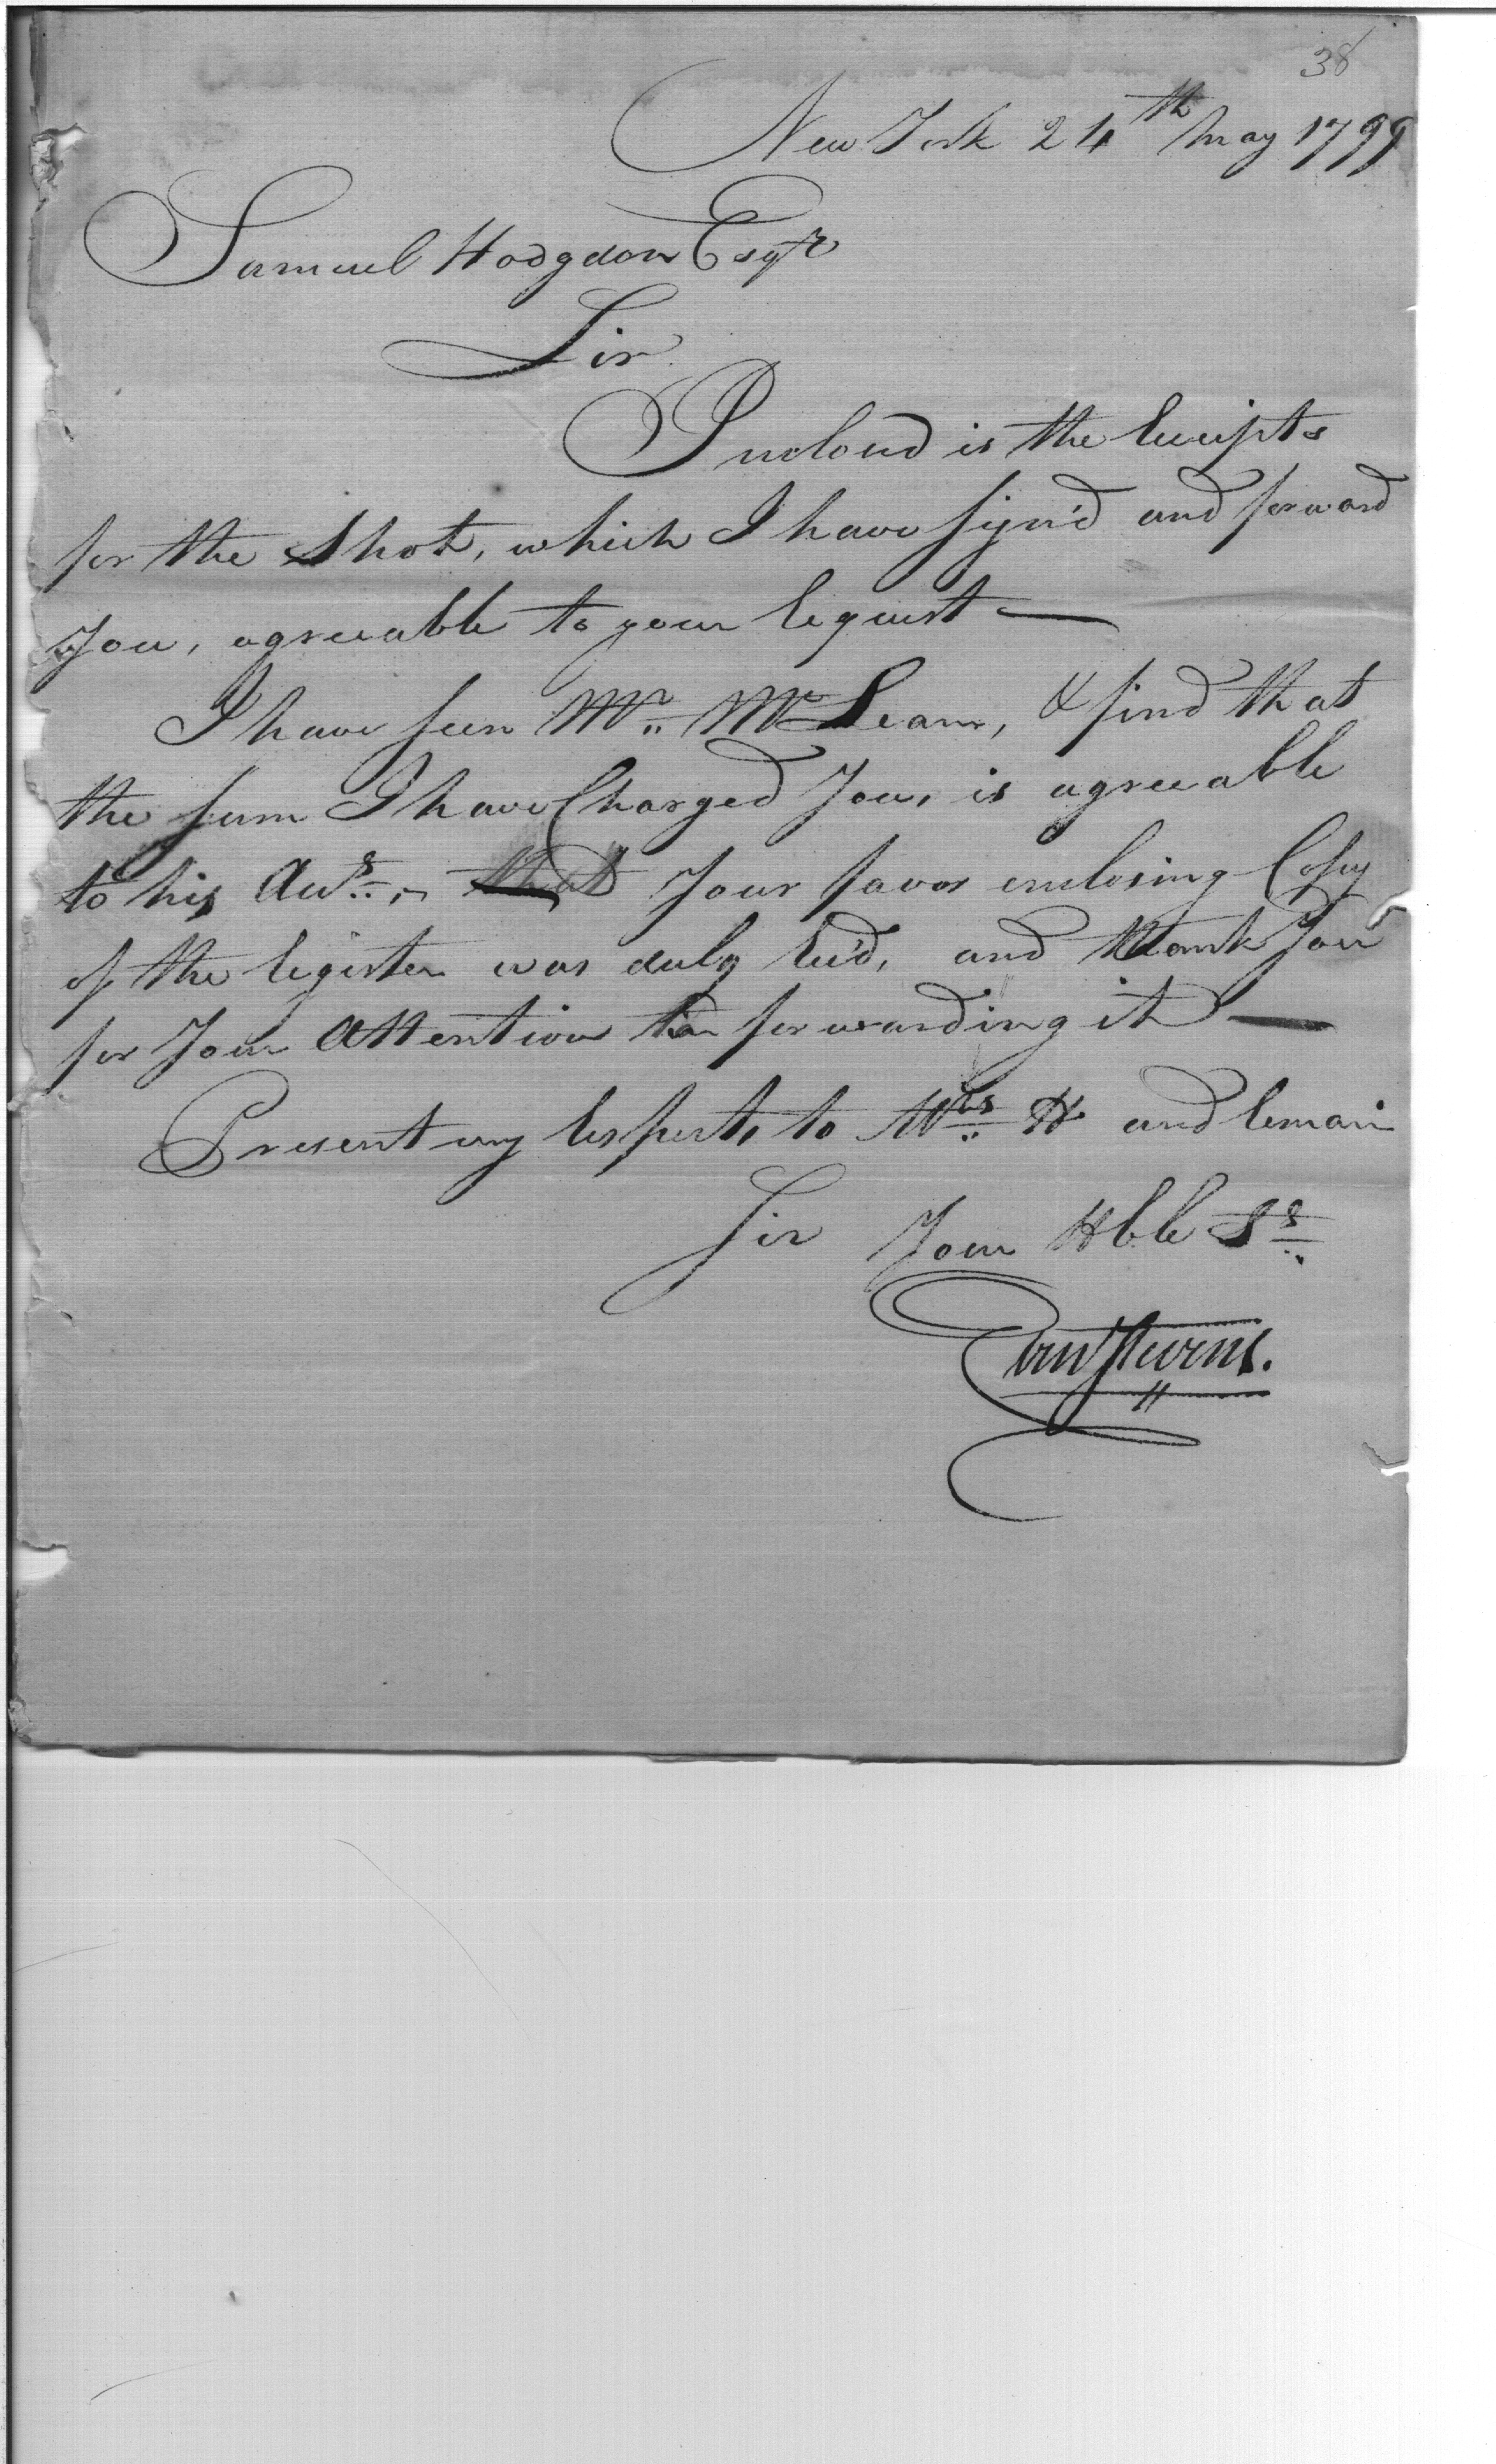 38
New York 24th May 1799
Samuel Hodgdon Esqr
Sir
Inclosed is the Receipts
for the Shot, which I have sign'd and forward
You, agreeable to your Request —
I have seen Mr. McLean, & find that
the sum I have Charged You, is agreeable
to his Your favor enclosing Copy
of the Register was duly Rec'd, and thank You
for Your Attention in forwarding it —
Present my Respects to Mrs. H and Remain
Sir Your Hble St
Eben Stevens.